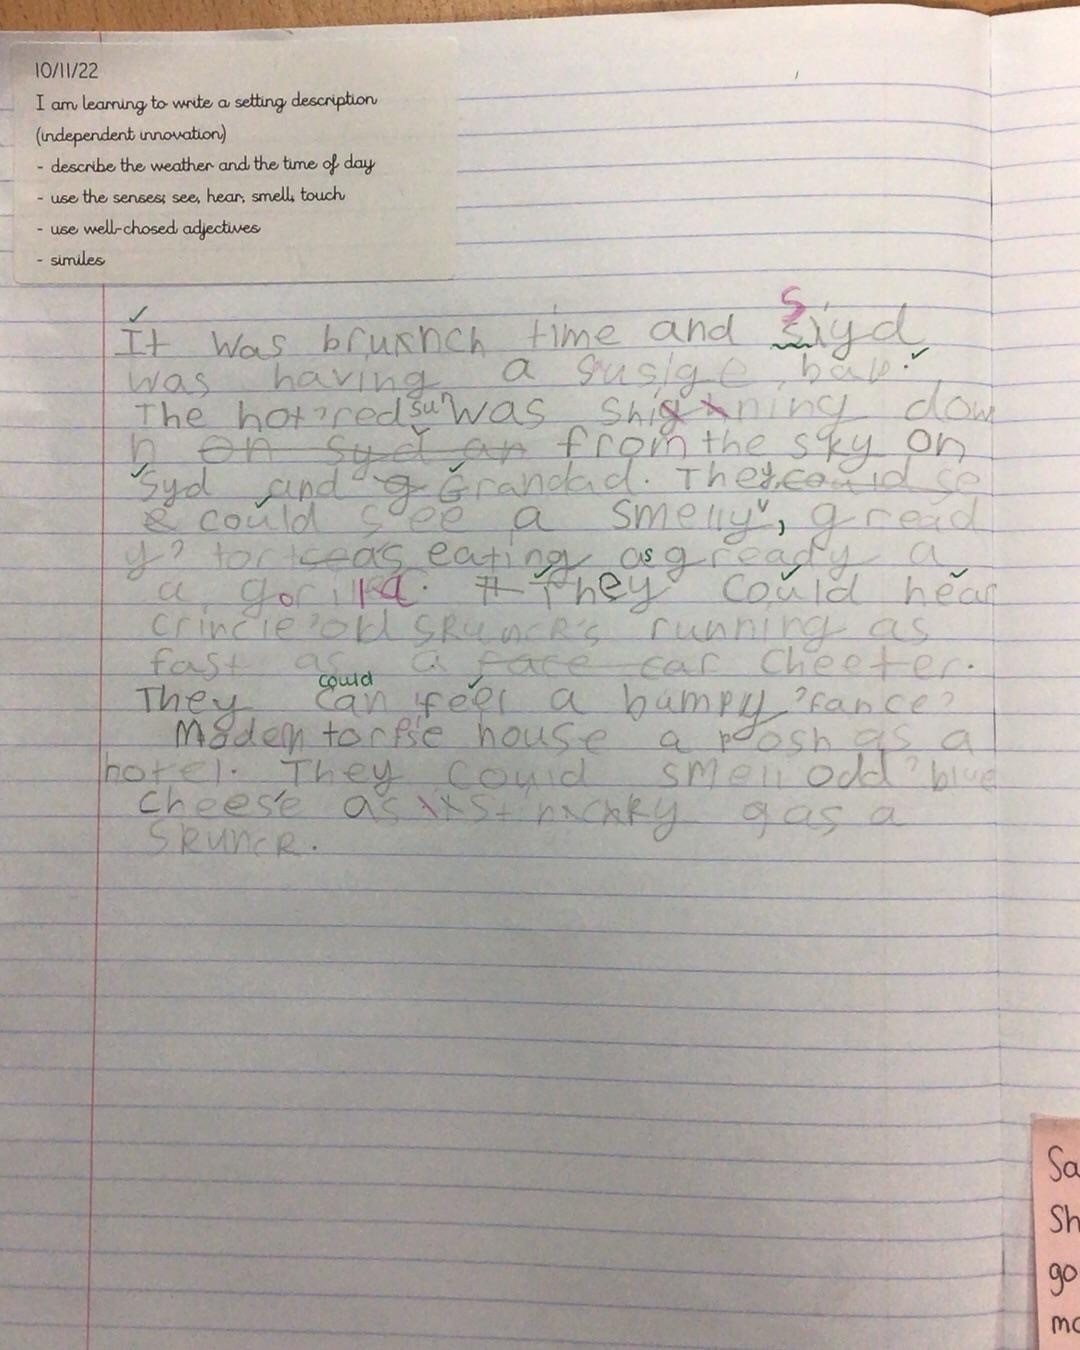 10/11/22
I am learning to write a setting description
(independent innovation)
- describe the weather and the time of day
- use the senses; see, hear, smell, touch
- use well-chosed adjectives
- similes
It was brunch time and Siyd
was having a susige bap.
The hot, red sun was shining dow
n on Syd an from the sky on
Syd and g Grandad. They could se
e could see a smelly, gread
y, eating as gready a
a gorilla. They could hear
crincle, old skunck's running as
fast as a race car cheeter.
They could can feel a bumpy, fance,
house a posh as a
hotel. They could smell odd, blue
cheese as gas a
skunck.
Sa
Sh
go
mo